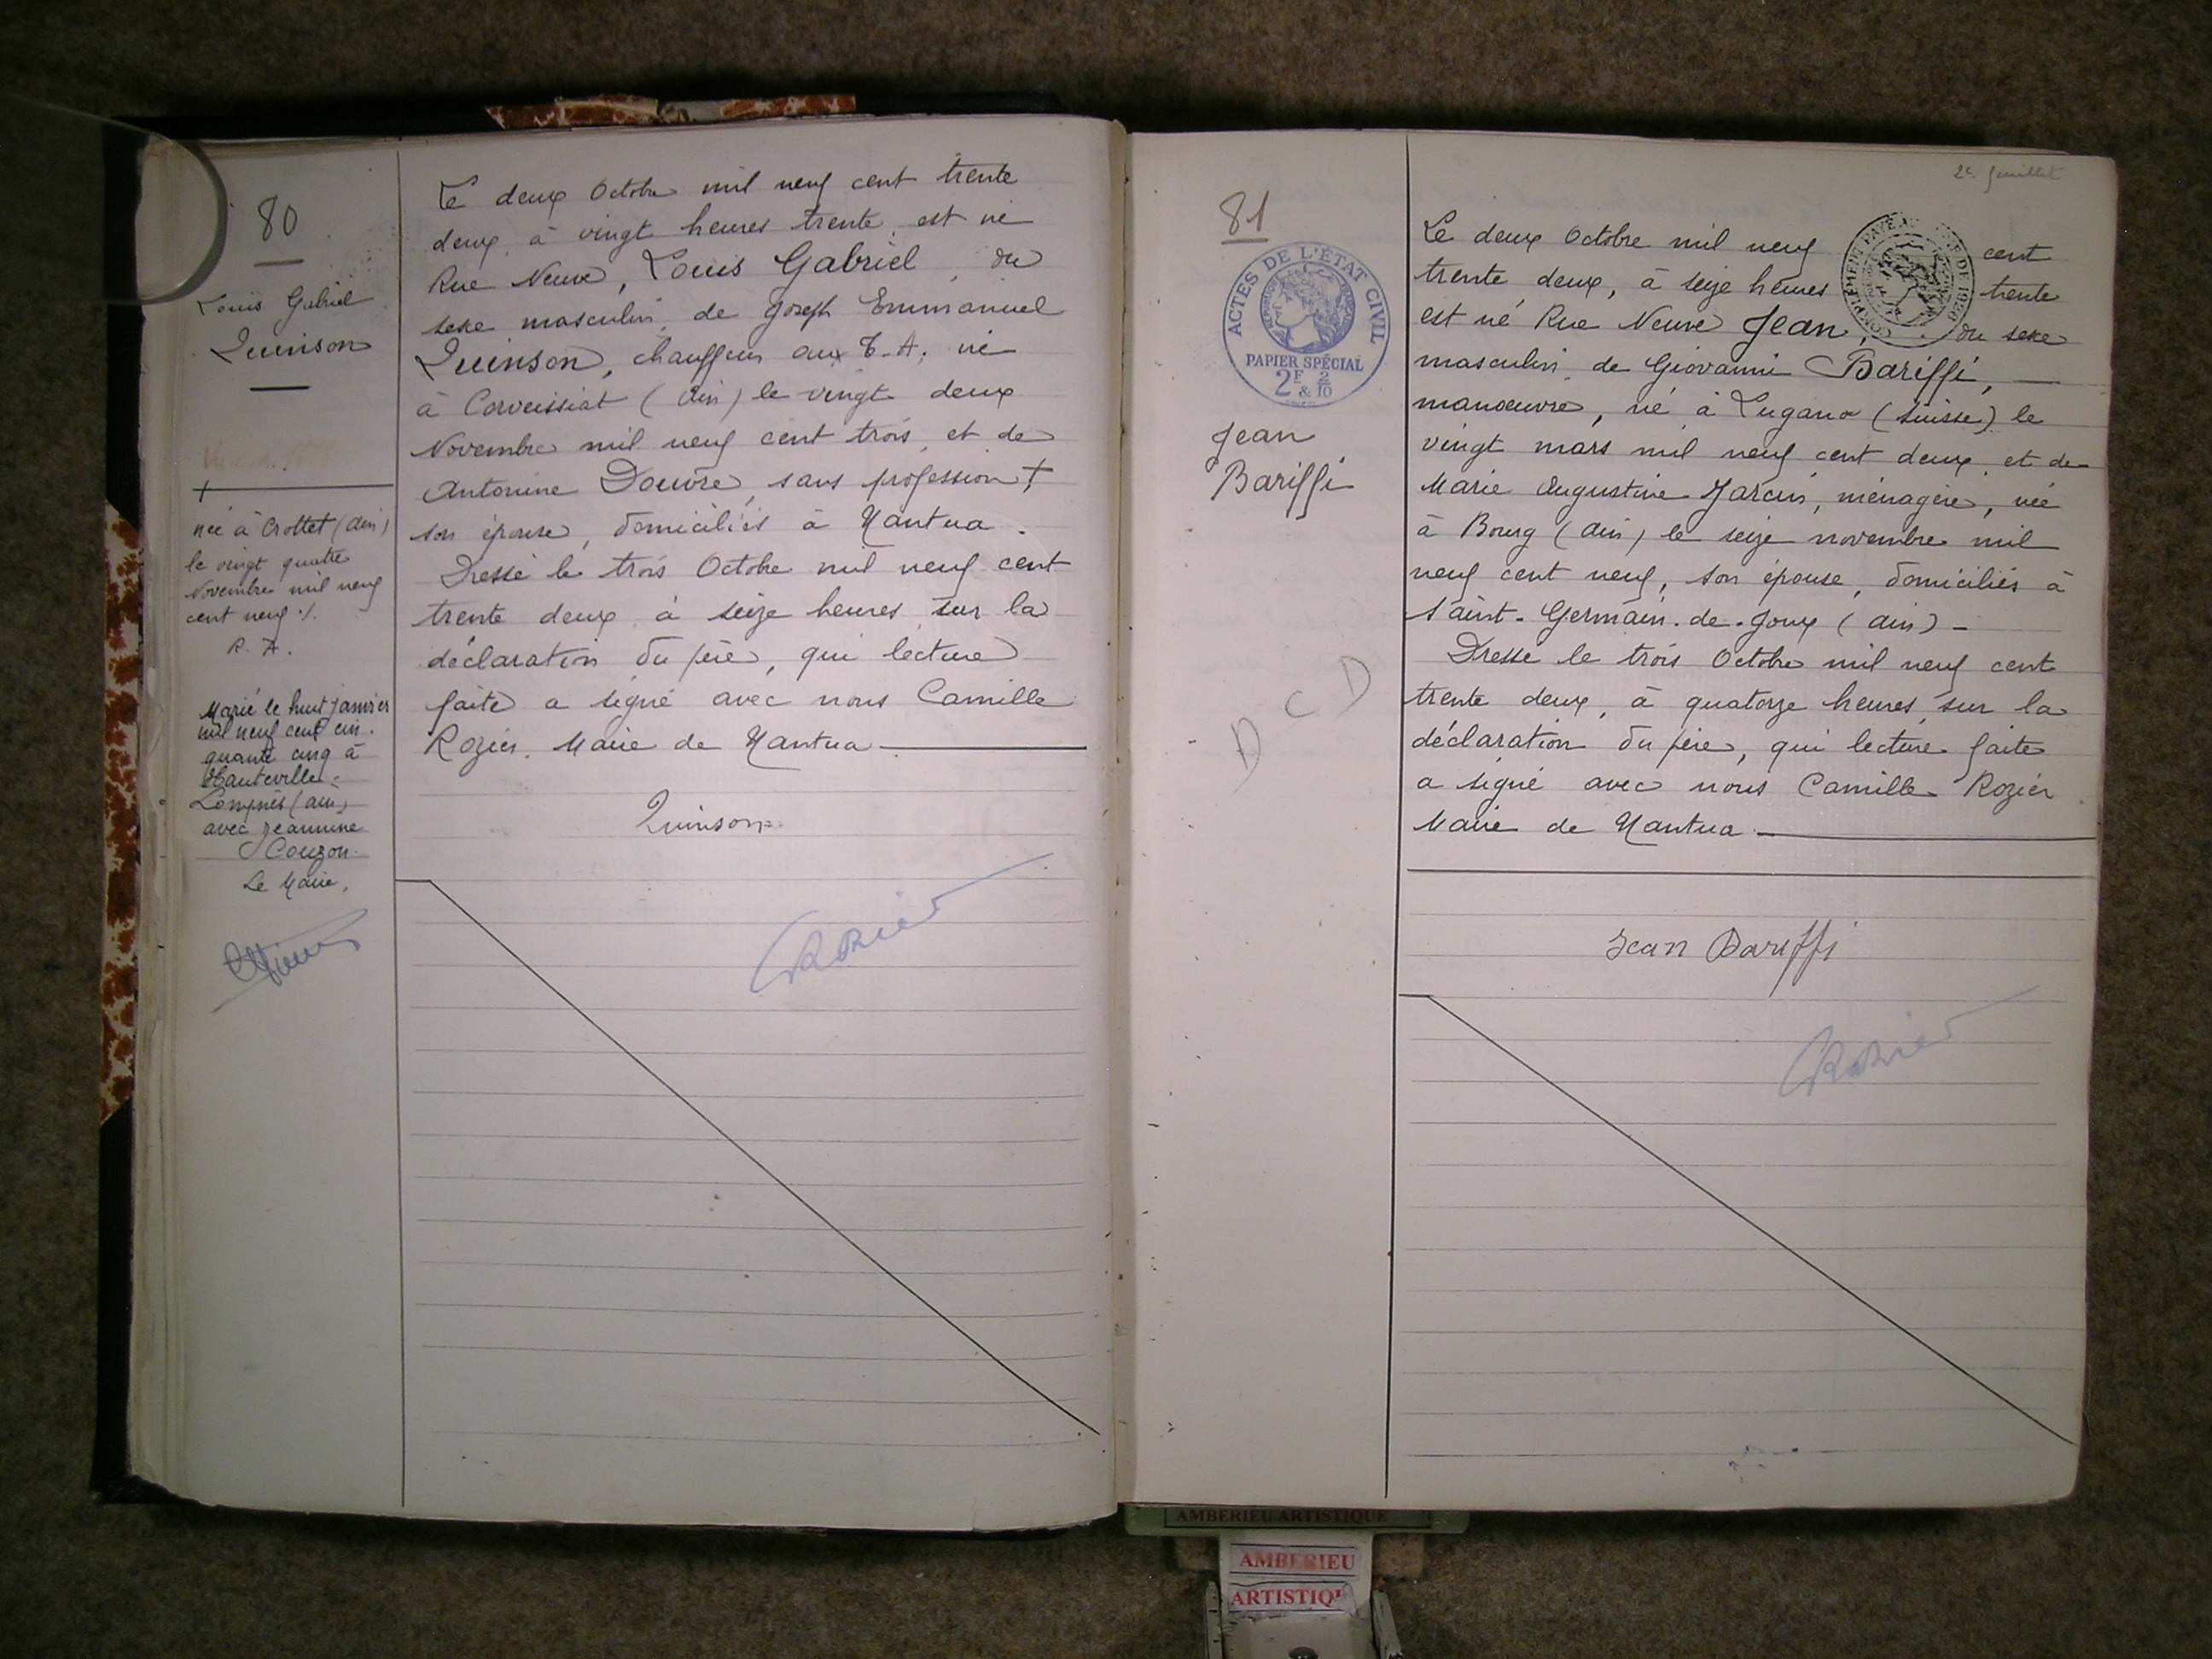 80
Louis Gabriel
Quinson
+
née à Crottet (Ain)
le vingt quatre
Novembre mil neuf
cent neuf ./.
R. A.
Marié le huit janvier
mil neuf cent cin-
quante cinq à
Hauteville-
Lompnès (Ain)
avec Jeannine
Couzon.
Le Maire,
Le deux Octobre mil neuf cent trente
deux à vingt heures trente, est né
Rue Neuve, Louis Gabriel, du
sexe masculin, de Joseph Emmanuel
Quinson, chauffeur aux T.A. né
à Corveissiat (Ain) le vingt deux
Novembre mil neuf cent trois, et de
Antonine Douvre, sans profession +
son épouse, domiciliés à Nantua.
Dressé le trois Octobre mil neuf cent
trente deux à seize heures, sur la
déclaration du père, qui lecture
faite a signé avec nous Camille
Rozier, Maire de Nantua
Quinson
CRozier
2e feuillet
81
ACTES DE L'ÉTAT CIVIL
PAPIER SPÉCIAL
2F & 2/10
Jean
Bariffi
D C D
Le deux Octobre mil neuf cent
trente deux, à seize heures trente
est né Rue Neuve Jean, du sexe
masculin, de Giovanni Bariffi,
manœuvre, né à Lugano (Suisse) le
vingt mars mil neuf cent deux, et de
Marie Augustine Jarcin, ménagère, née
à Bourg (Ain) le seize novembre mil
neuf cent neuf, son épouse, domiciliés à
Saint-Germain-de-Joux (Ain) -
Dressé le trois Octobre mil neuf cent
trente deux, à quatorze heures, sur la
déclaration du père, qui lecture faite
a signé avec nous Camille Rozier
Maire de Nantua
Jean Bariffi
CRozier
AMBERIEU ARTISTIQUE
AMBERIEU
ARTISTIQU